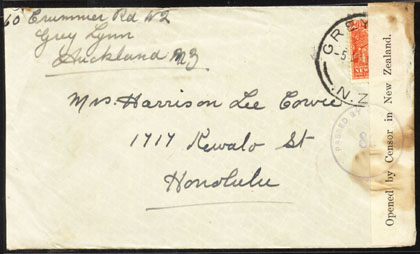 60 Crummer Rd W2
Grey Lynn
Auckland NZ
Mrs. Harrison Lee Cowie
1717 Kewalo St
Honolulu
GREY
N.Z
PASSED BY
Opened by Censor in New Zealand.